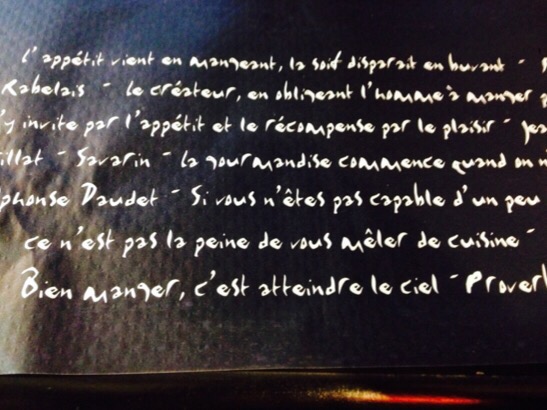 l'appétit vient en mangeant, la soif disparait en buvant -
Rabelais - le créateur, en obligeant l'homme à manger
y invite par l'appétit et le récompense par le plaisir -
Savarin - la gourmandise commence quand on
Daudet - Si vous n'êtes pas capable d'un peu
ce n'est pas la peine de vous mêler de cuisine -
Bien manger, c'est atteindre le ciel -